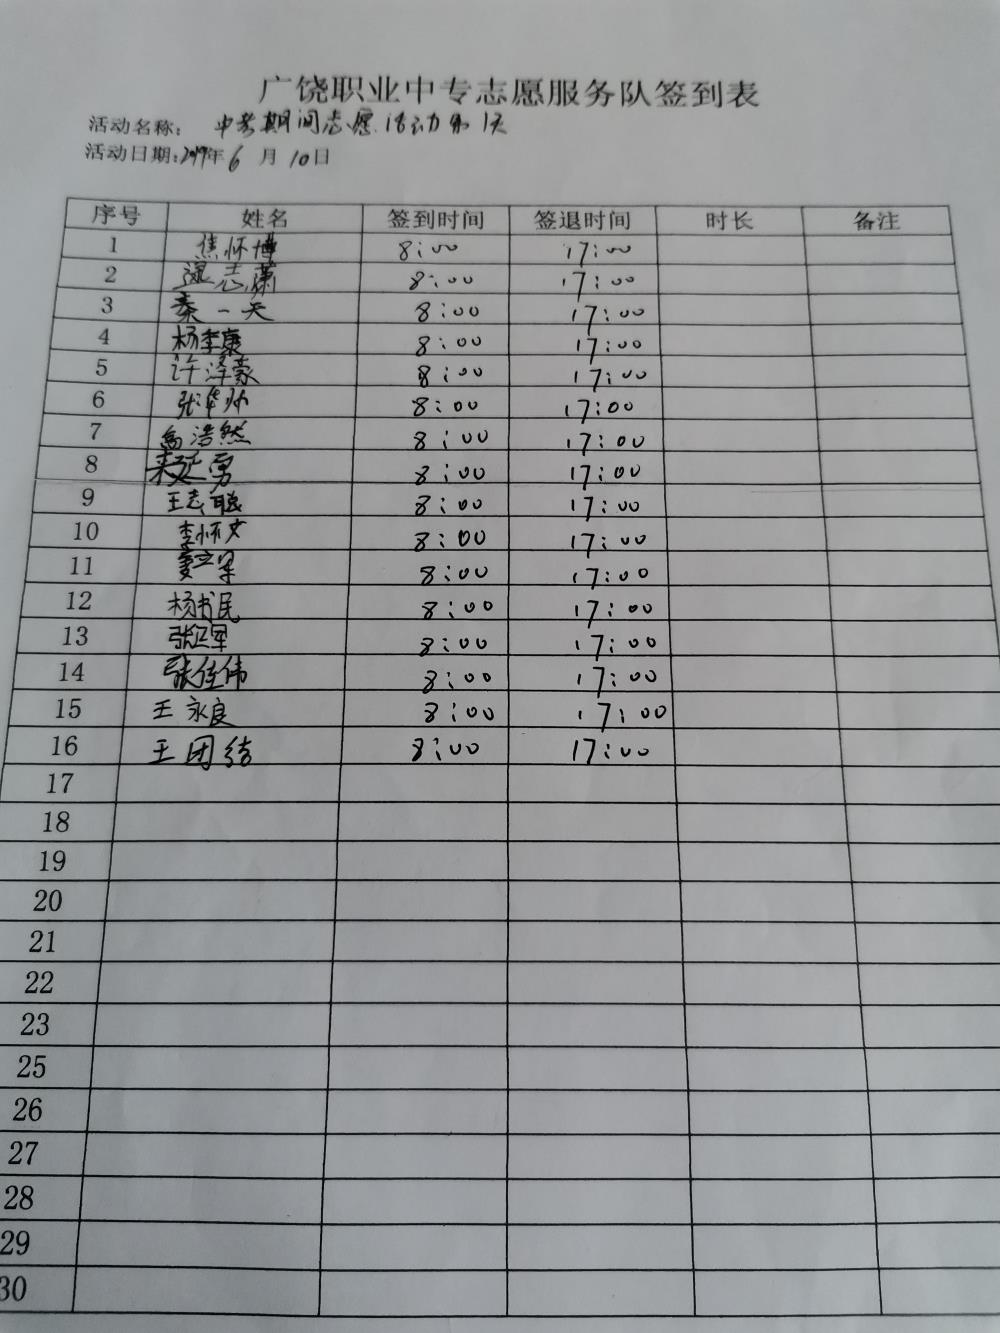 广饶职业中专志愿服务队签到表
活动名称: 中考期间志愿活动第1天
活动日期:2019年6月10日
序号 姓名 签到时间 签退时间 时长 备注
1 焦怀博 8:00 17:00
2 逯志萧 8:00 17:00
3 秦一天 8:00 17:00
4 杨季康 8:00 17:00
5 许泽豪 8:00 17:00
6 张华帅 8:00 17:00
7 高浩然 8:00 17:00
8 来延勇 8:00 17:00
9 王志聪 8:00 17:00
10 李怀文 8:00 17:00
11 8:00 17:00
12 杨书民 8:00 17:00
13 张卫军 8:00 17:00
14 张佳伟 8:00 17:00
15 王永良 8:00 17:00
16 王团结 8:00 17:00
17
18
19
20
21
22
23
25
26
27
28
29
30